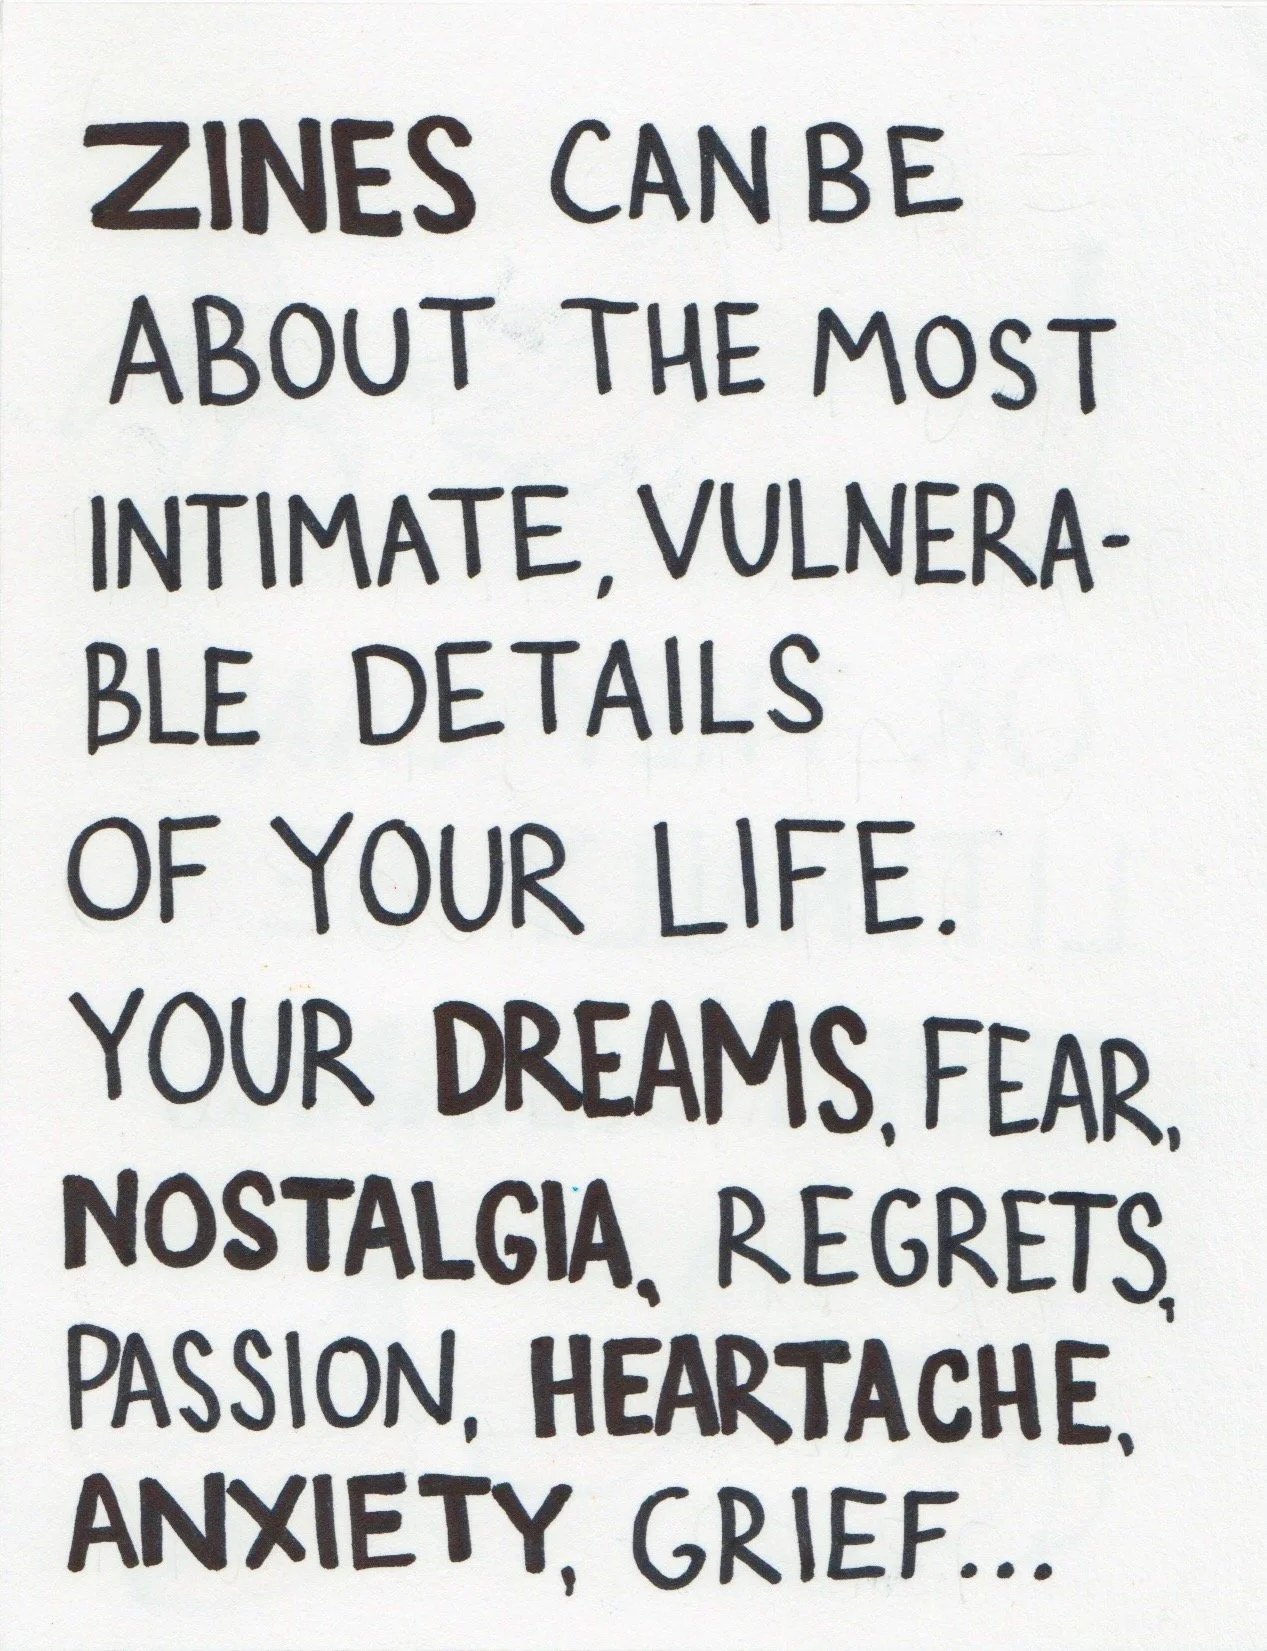 ZINES CAN BE
ABOUT THE MOST
INTIMATE, VULNERA-
BLE DETAILS
OF YOUR LIFE.
YOUR DREAMS, FEAR,
NOSTALGIA, REGRETS,
PASSION, HEARTACHE,
ANXIETY, GRIEF...